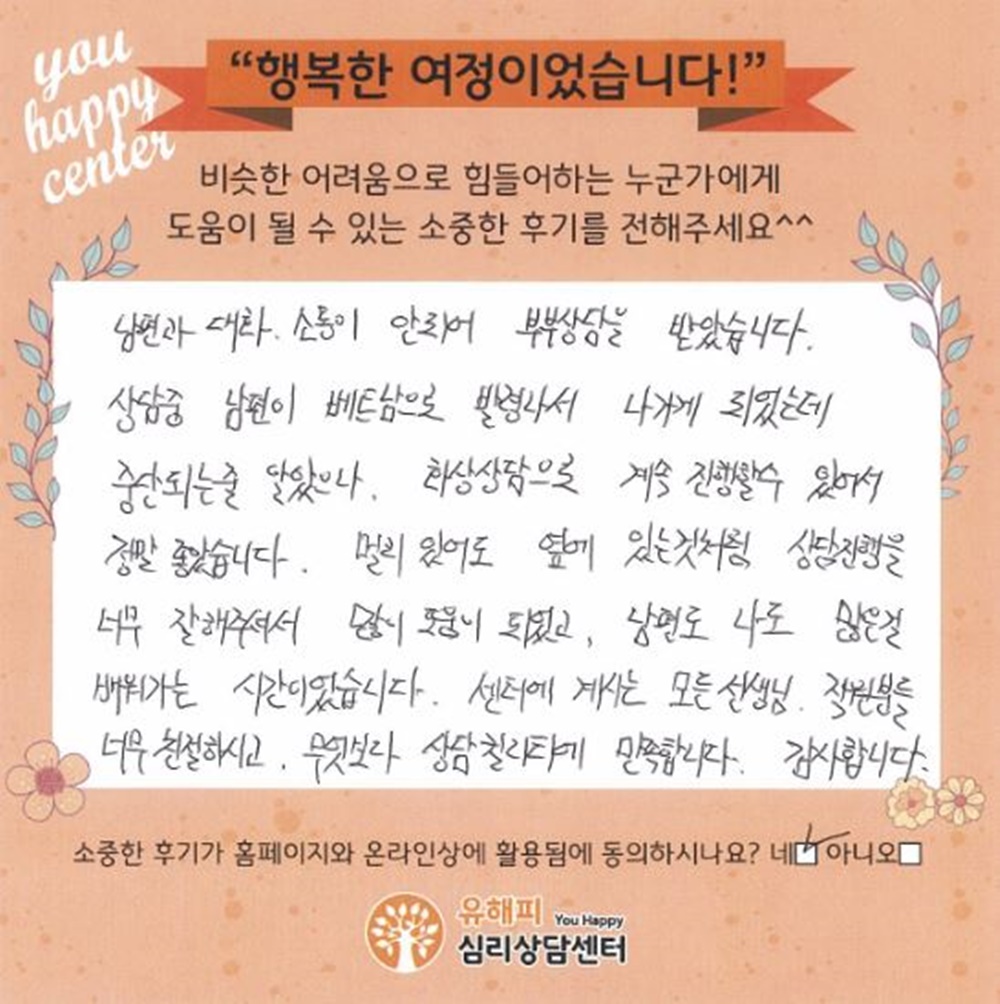 you
happy
center
“행복한 여정이었습니다!”
비슷한 어려움으로 힘들어하는 누군가에게
도움이 될 수 있는 소중한 후기를 전해주세요^^
남편과 대화. 소통이 안되어 부부상담을 받았습니다.
상담중 남편이 베트남으로 발령나서 나가게 되었는데
중단되는줄 알았으나, 화상상담으로 계속 진행할수 있어서
정말 좋았습니다. 멀리 있어도 옆에 있는것처럼 상담진행을
너무 잘해주셔서 많이 도움이 되었고, 남편도 나도 많은걸
배워가는 시간이었습니다. 센터에 계시는 모든 선생님. 직원분들
너무 친절하시고, 무엇보다 상담 퀄리티에 만족합니다. 감사합니다.
소중한 후기가 홈페이지와 온라인상에 활용됨에 동의하시나요? 네☑ 아니오□
유해피 You Happy
심리상담센터